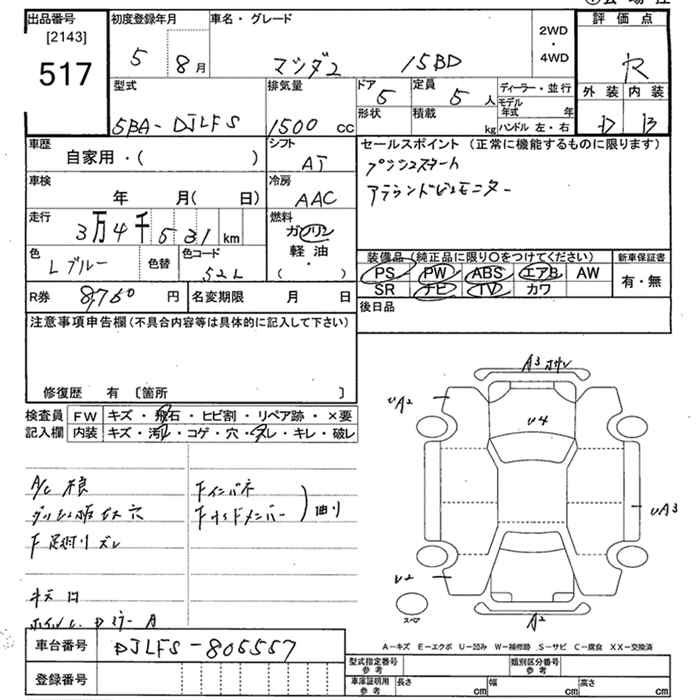 出品番号
[2143]
517
初度登録年月
5
8月
車名・グレード
マツダ2 15BD
2WD
・
4WD
評価点
外装 内装
D B
型式
5BA-DJLFS
排気量
1500 CC
ドア
5
形状
定員
5 人
積載
kg
ディーラー・並行
モデル
年式 年
ハンドル 左・右
車歴
自家用・( )
シフト
AT
セールスポイント (正常に機能するものに限ります)
プッシュスタート
アラウンドビューモニター
車検
年 月( 日)
冷房
AAC
走行
3万4千531 km
燃料
ガソリン
軽油
( ・ )
色
Lブルー
色替
色コード
52L
装備品 (純正品に限り〇をつけてください)
PS PW ABS エアB AW
SR ナビ TV カワ
新車保証書
有・無
R券 8,760 円
名変期限 月 日
後日品
注意事項申告欄(不具合内容等は具体的に記入して下さい)
修復歴 有 〔箇所 〕
検査員
記入欄
FW キズ・飛石・ヒビ割・リペア跡・×要
内装 キズ・汚レ・コゲ・穴・スレ・キレ・破レ
A/C
穴
F ズレ
Fインパネ
曲り
キズ 凹
A3
UA2
U4
UA3
U2
A2
スペア
車台番号 DJLFS-806557
登録番号
A-キズ E-エクボ U-凹み W-補修跡 S-サビ C-腐食 XX-交換済
型式指定番号
参考
類別区分番号
参考
車庫証明用
参考
長さ cm
幅 cm
高さ cm